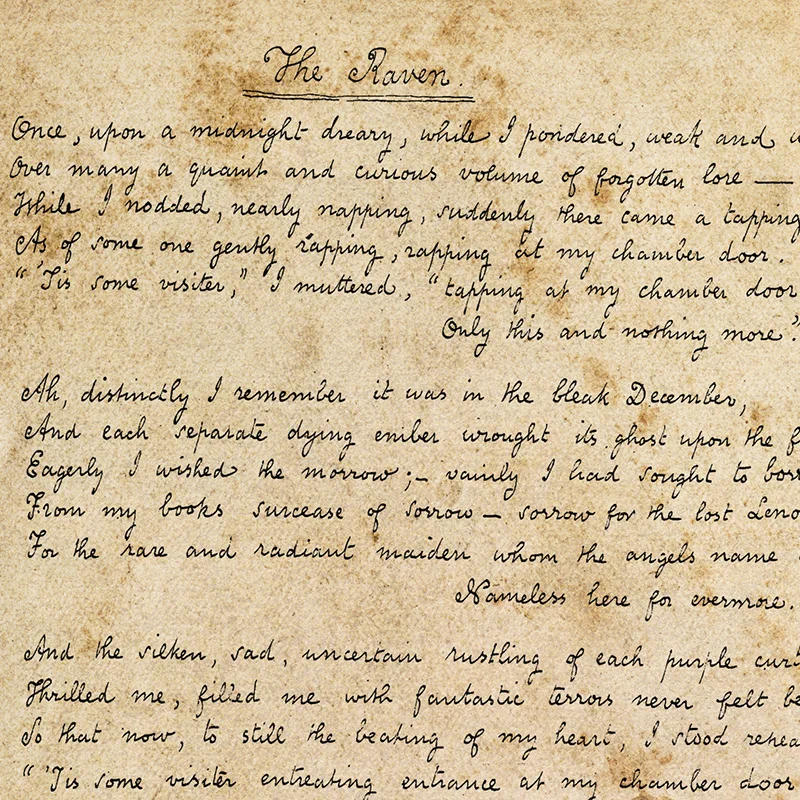 The Raven.
Once, upon a midnight dreary, while I pondered, weak and
Over many a quaint and curious volume of forgotten lore —
While I nodded, nearly napping, suddenly there came a tapping
As of some one gently rapping, rapping at my chamber door.
"'Tis some visiter," I muttered, "tapping at my chamber door
Only this and nothing more."
Ah, distinctly I remember it was in the bleak December,
And each separate dying ember wrought its ghost upon the
Eagerly I wished the morrow;— vainly I had sought to
From my books surcease of sorrow — sorrow for the lost
For the rare and radiant maiden whom the angels name
Nameless here for evermore.
And the silken, sad, uncertain rustling of each purple
Thrilled me, filled me with fantastic terrors never felt
So that now, to still the beating of my heart, I stood
"'Tis some visiter entreating entrance at my chamber door